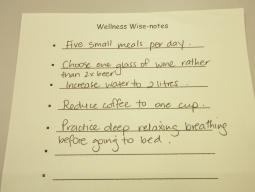 Wellness Wise-notes
Five small meals per day.
Choose one glass of wine rather
than 2x beer
Increase water to 2 litres.
Reduce coffee to one cup.
Practice deep relaxing breathing
before going to bed.